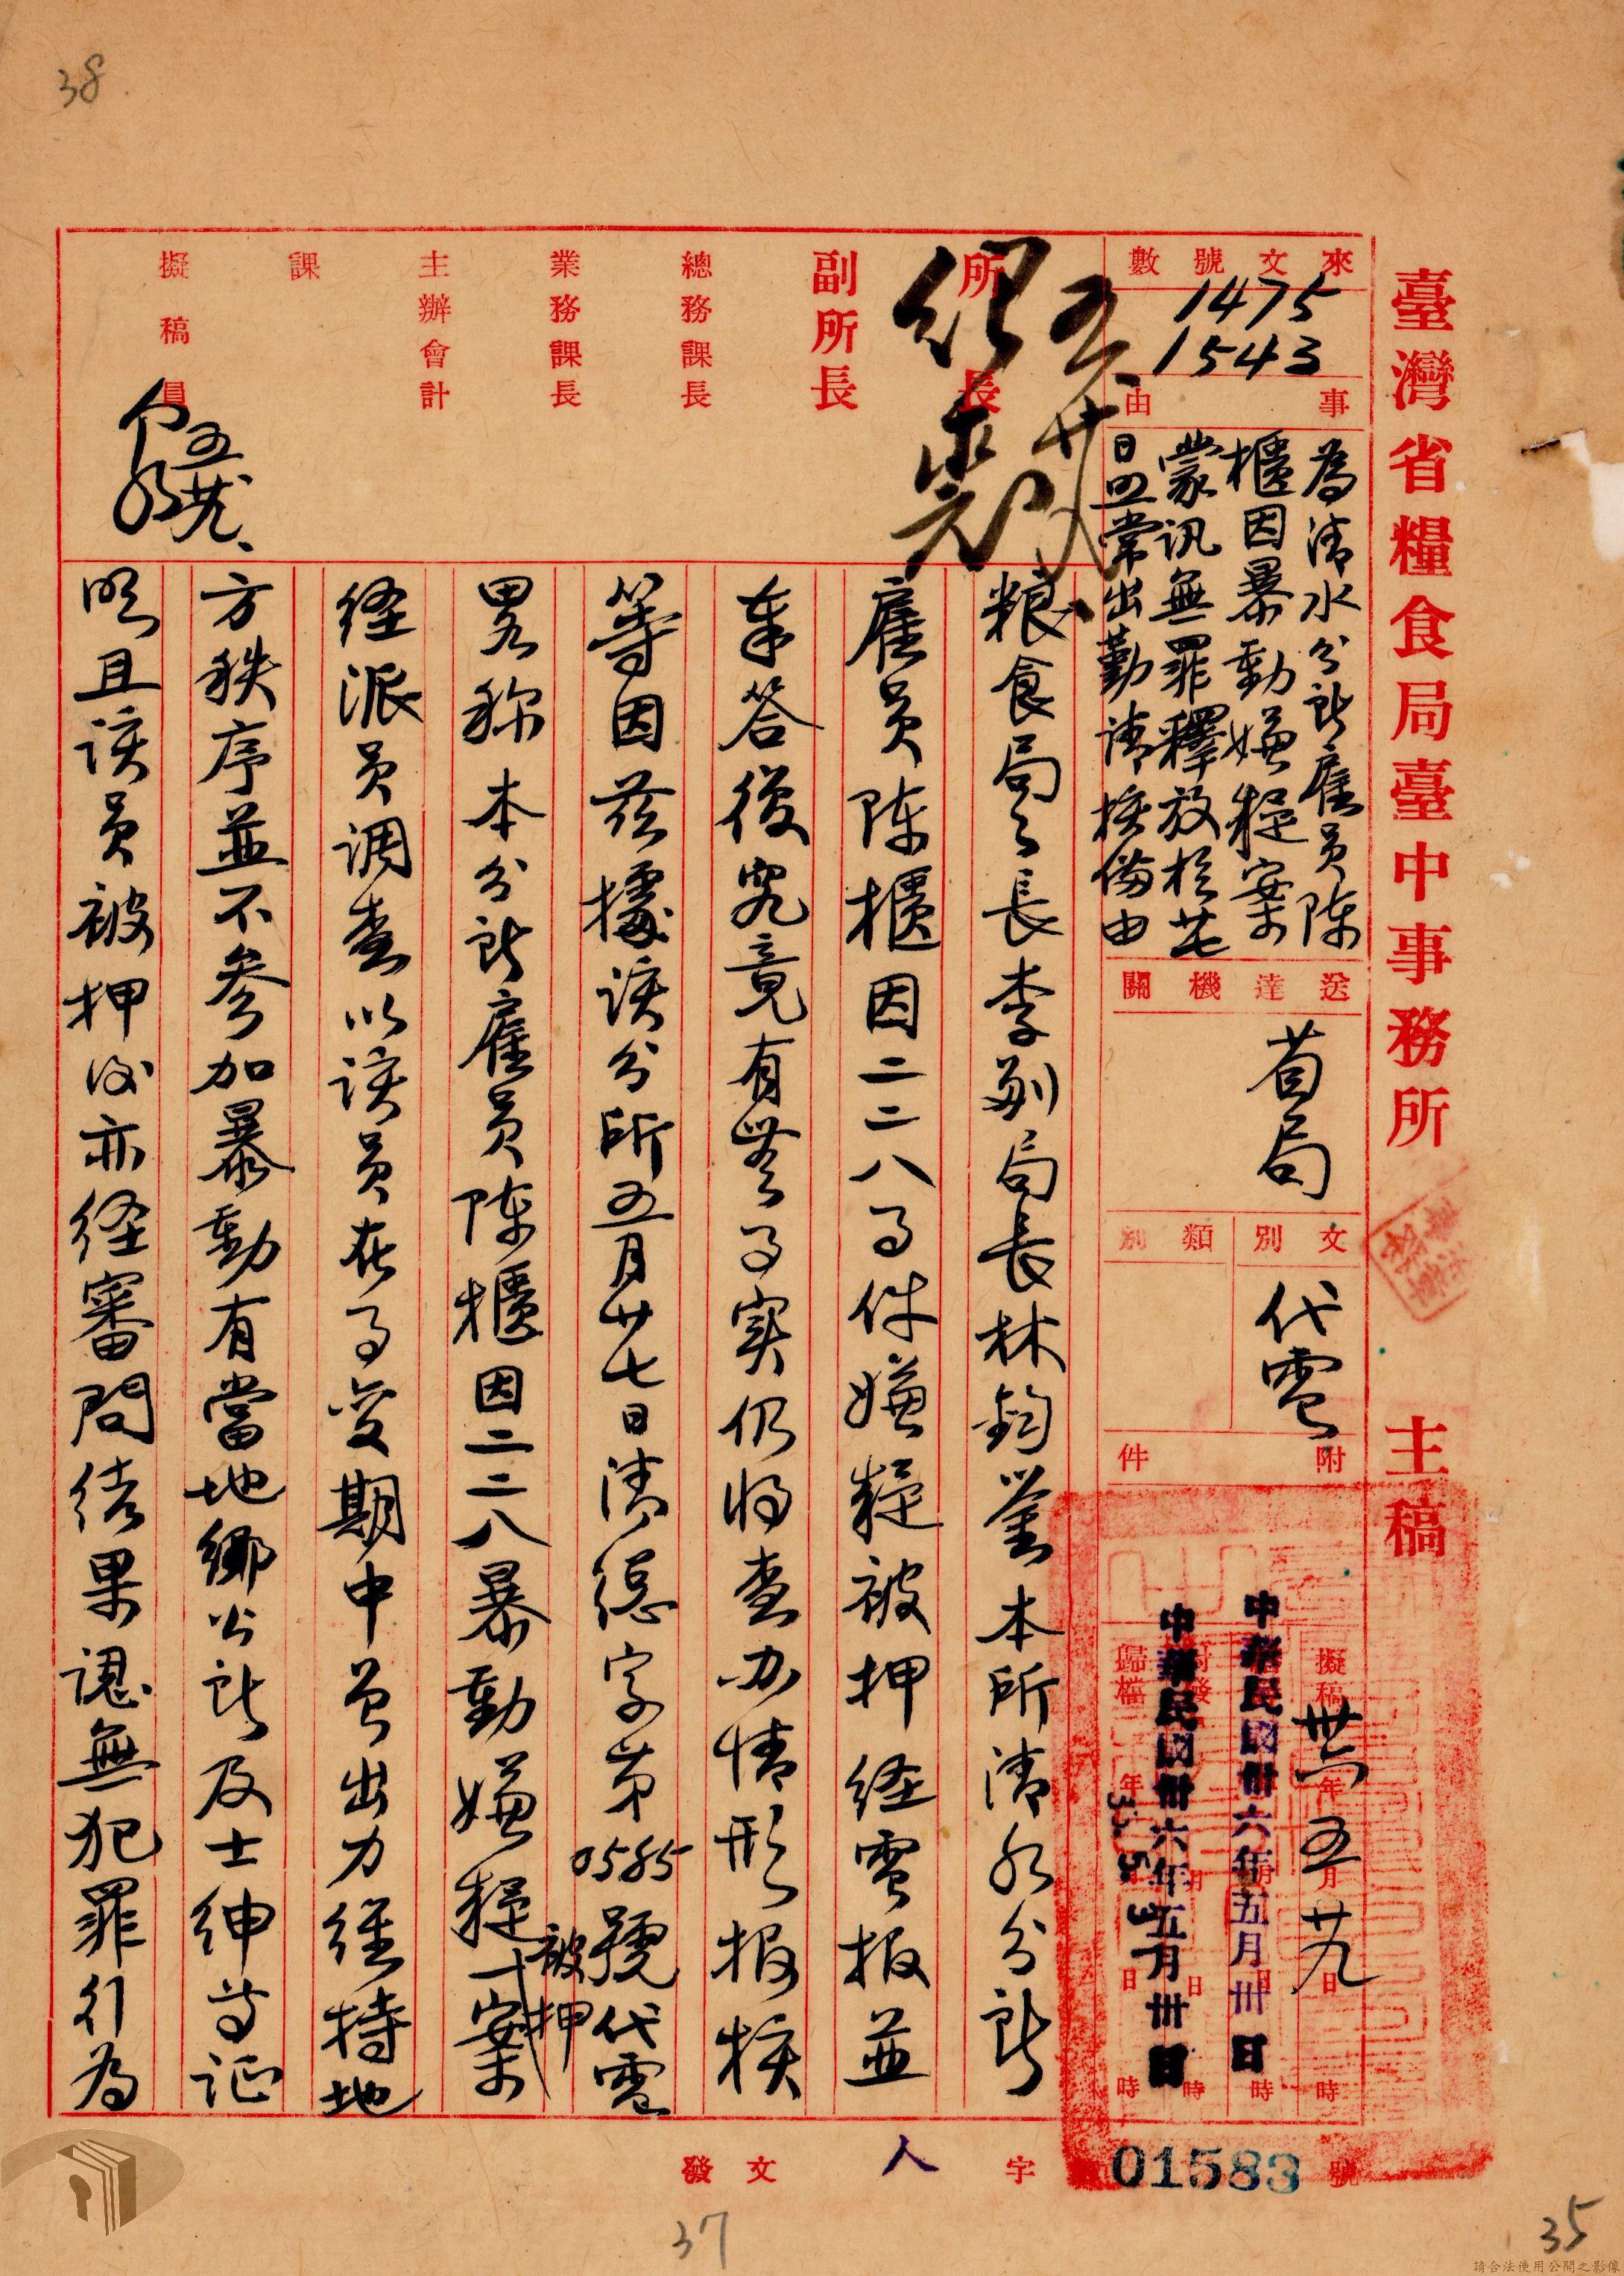 38
臺灣省糧食局臺中事務所
主稿
來文號數
1475
1543
事由
為清水分所雇員陳
櫃因暴動嫌疑案
蒙訊無罪釋放於廿七
日照常出勤請核備由
送達機關
省局
文別
代電
類別
附件
擬稿
卅六年五月廿九日時
中華民國卅六年五月卅日
封發
中華民國卅六年五月卅日
歸檔
年月日時
所長
副所長
總務課長
業務課長
主辦會計
課
擬稿員
五廿九
粮食局局長李副局長林鈞鑒本所清水分所
雇員陳櫃因二二八事件嫌疑被押經電报並
奉答後究竟有無事实仍将查办情形报核
等因茲據該分所五月廿七日清總字第0585號代電
畧称本分所雇員陳櫃因二二八暴動嫌疑一案被押
経派員调查以該員在事变期中曾出力維持地
方秩序並不參加暴動有當地鄉公所及士紳等証
明且該員被押後亦経審問結果認無犯罪行為
發文
人
字
01583
號
37
35
請合法使用公開之影像